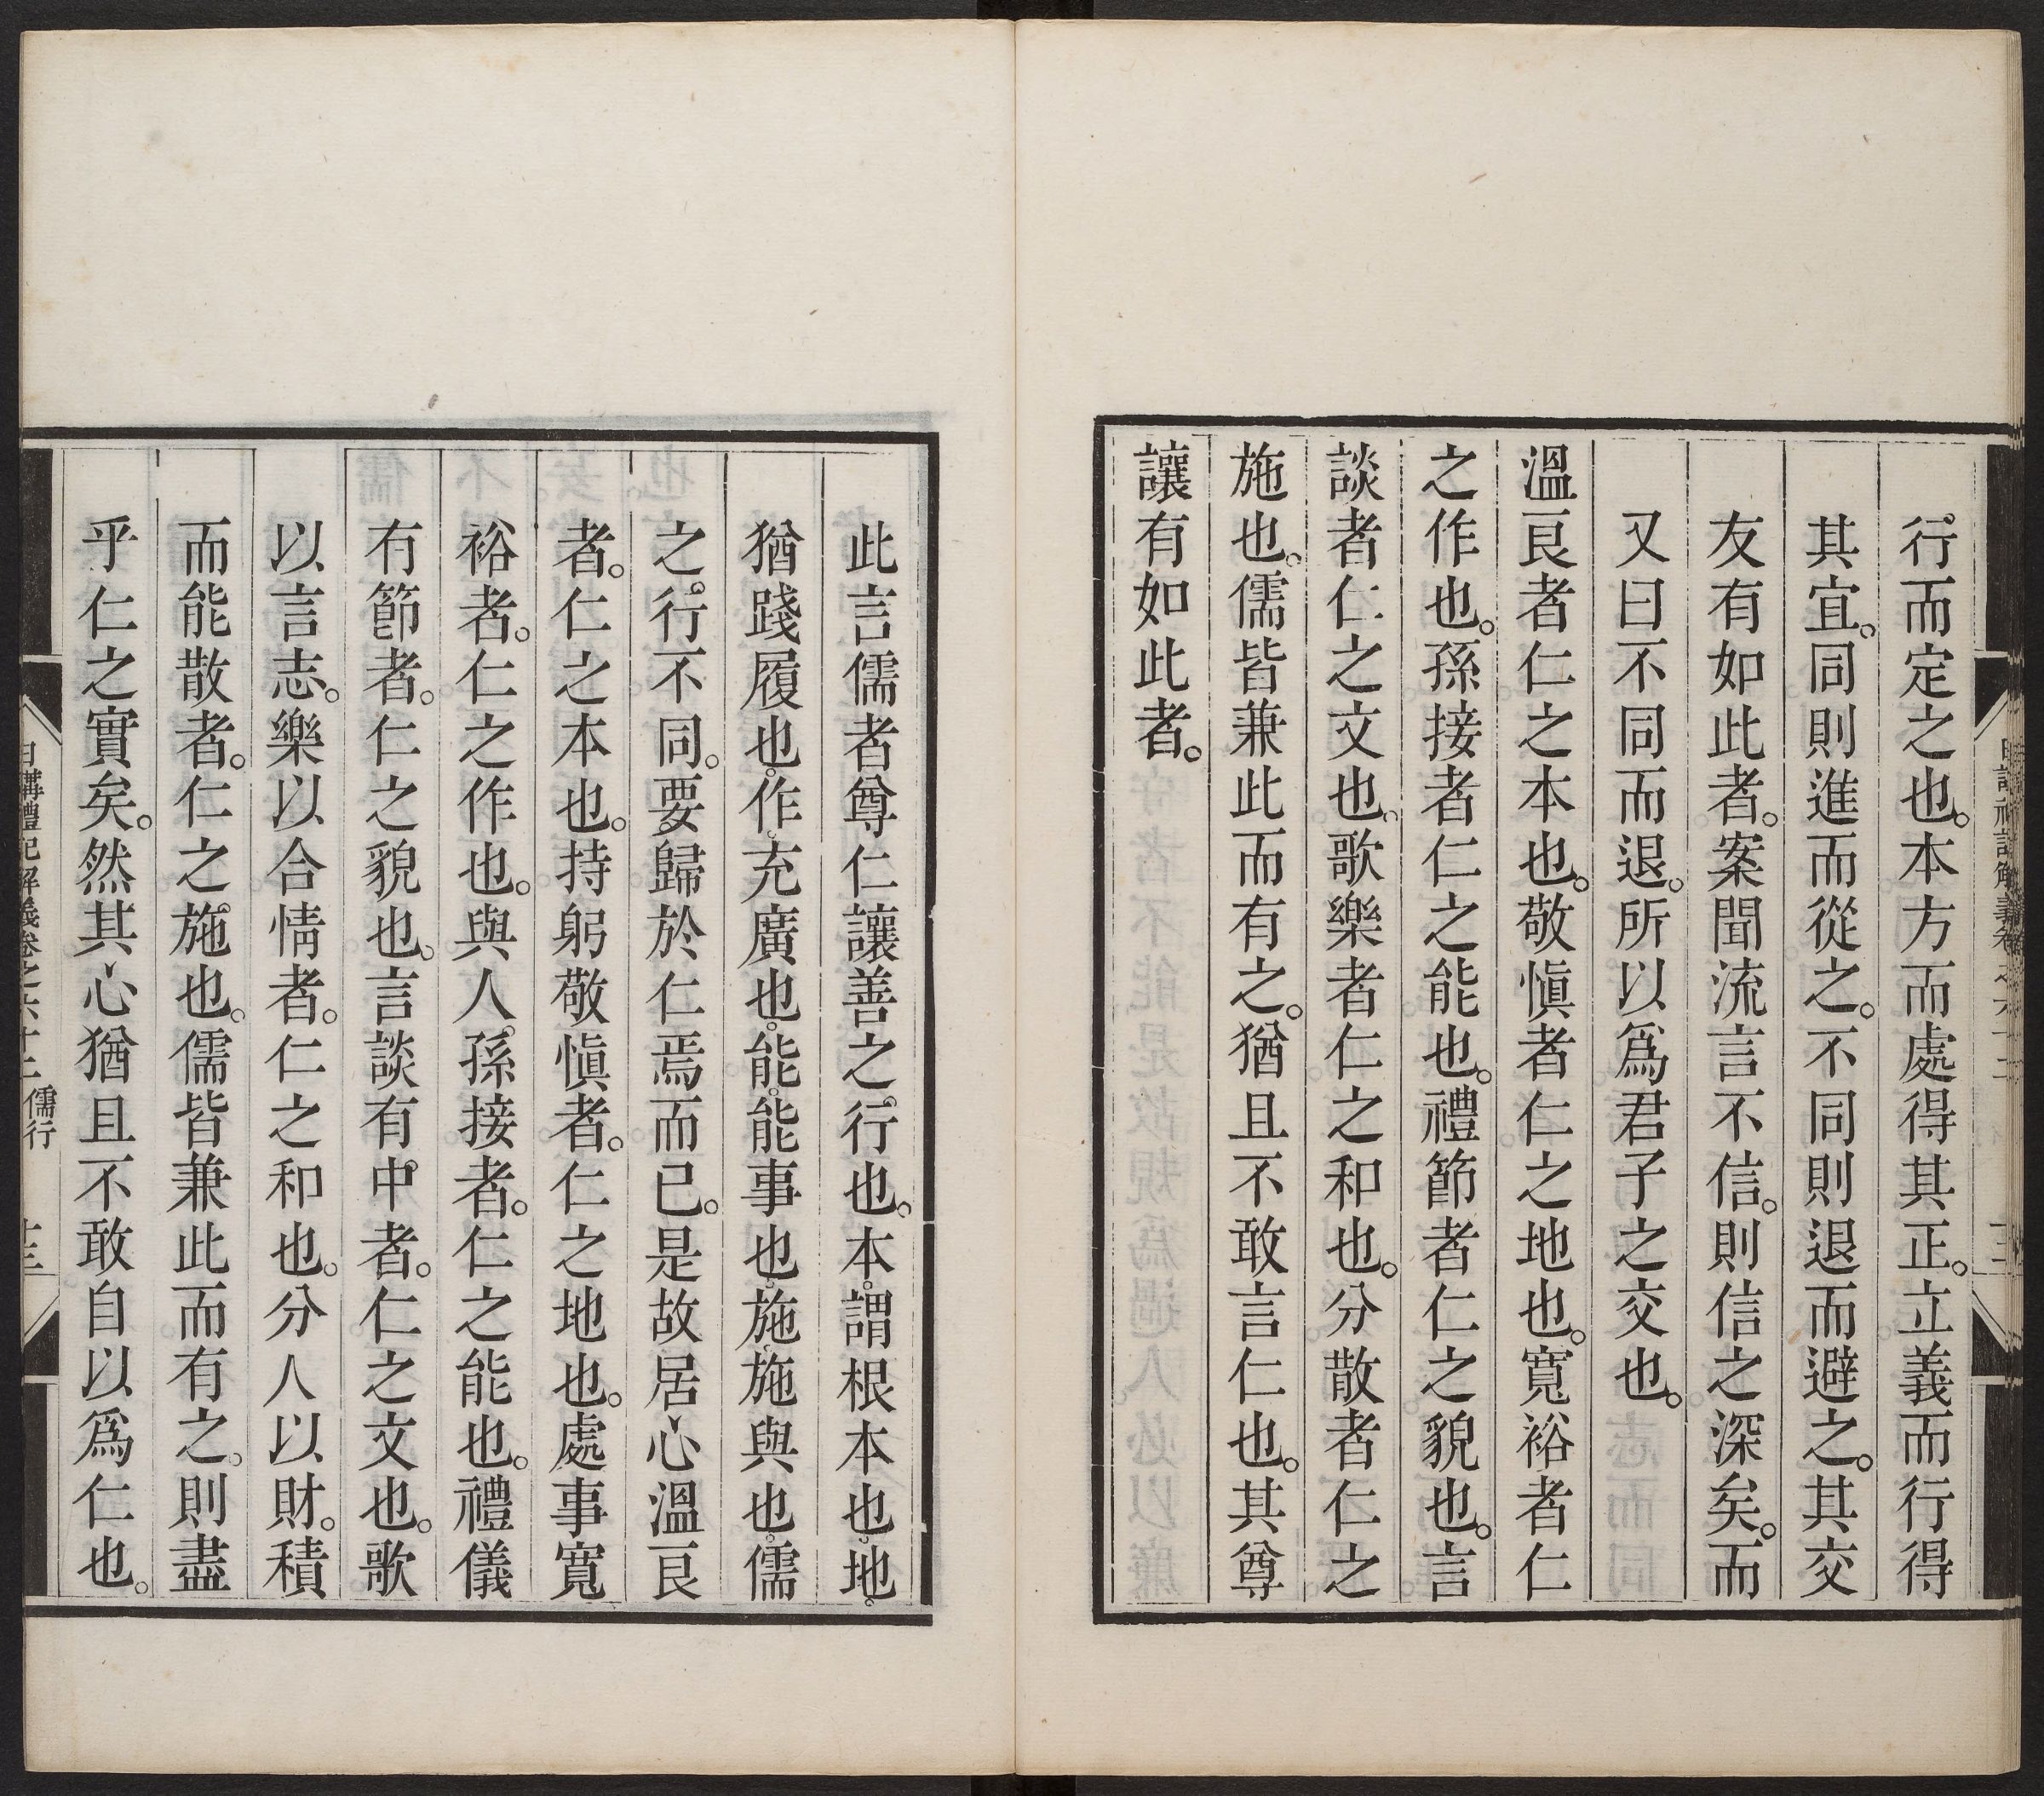 行而定之也。本方而處得其正。立義而行得
其宜。同則進而從之。不同則退而避之。其交
友有如此者。案聞流言不信。則信之深矣。而
又曰不同而退。所以爲君子之交也。
溫良者仁之本也。敬愼者仁之地也。寬裕者仁
之作也。孫接者仁之能也。禮節者仁之貌也。言
談者仁之文也。歌樂者仁之和也。分散者仁之
施也。儒皆兼此而有之。猶且不敢言仁也。其尊
讓有如此者。
此言儒者尊仁讓善之行也。本。謂根本也。地。
猶踐履也。作。充廣也。能。能事也。施。施與也。儒
之行不同。要歸於仁焉而已。是故居心溫良
者。仁之本也。持躬敬愼者。仁之地也。處事寬
裕者。仁之作也。與人孫接者。仁之能也。禮儀
有節者。仁之貌也。言談有中者。仁之文也。歌
以言志。樂以合情者。仁之和也。分人以財。積
而能散者。仁之施也。儒皆兼此而有之。則盡
乎仁之實矣。然其心猶且不敢自以爲仁也。
日講禮記解義卷之六十二 儒行 十三